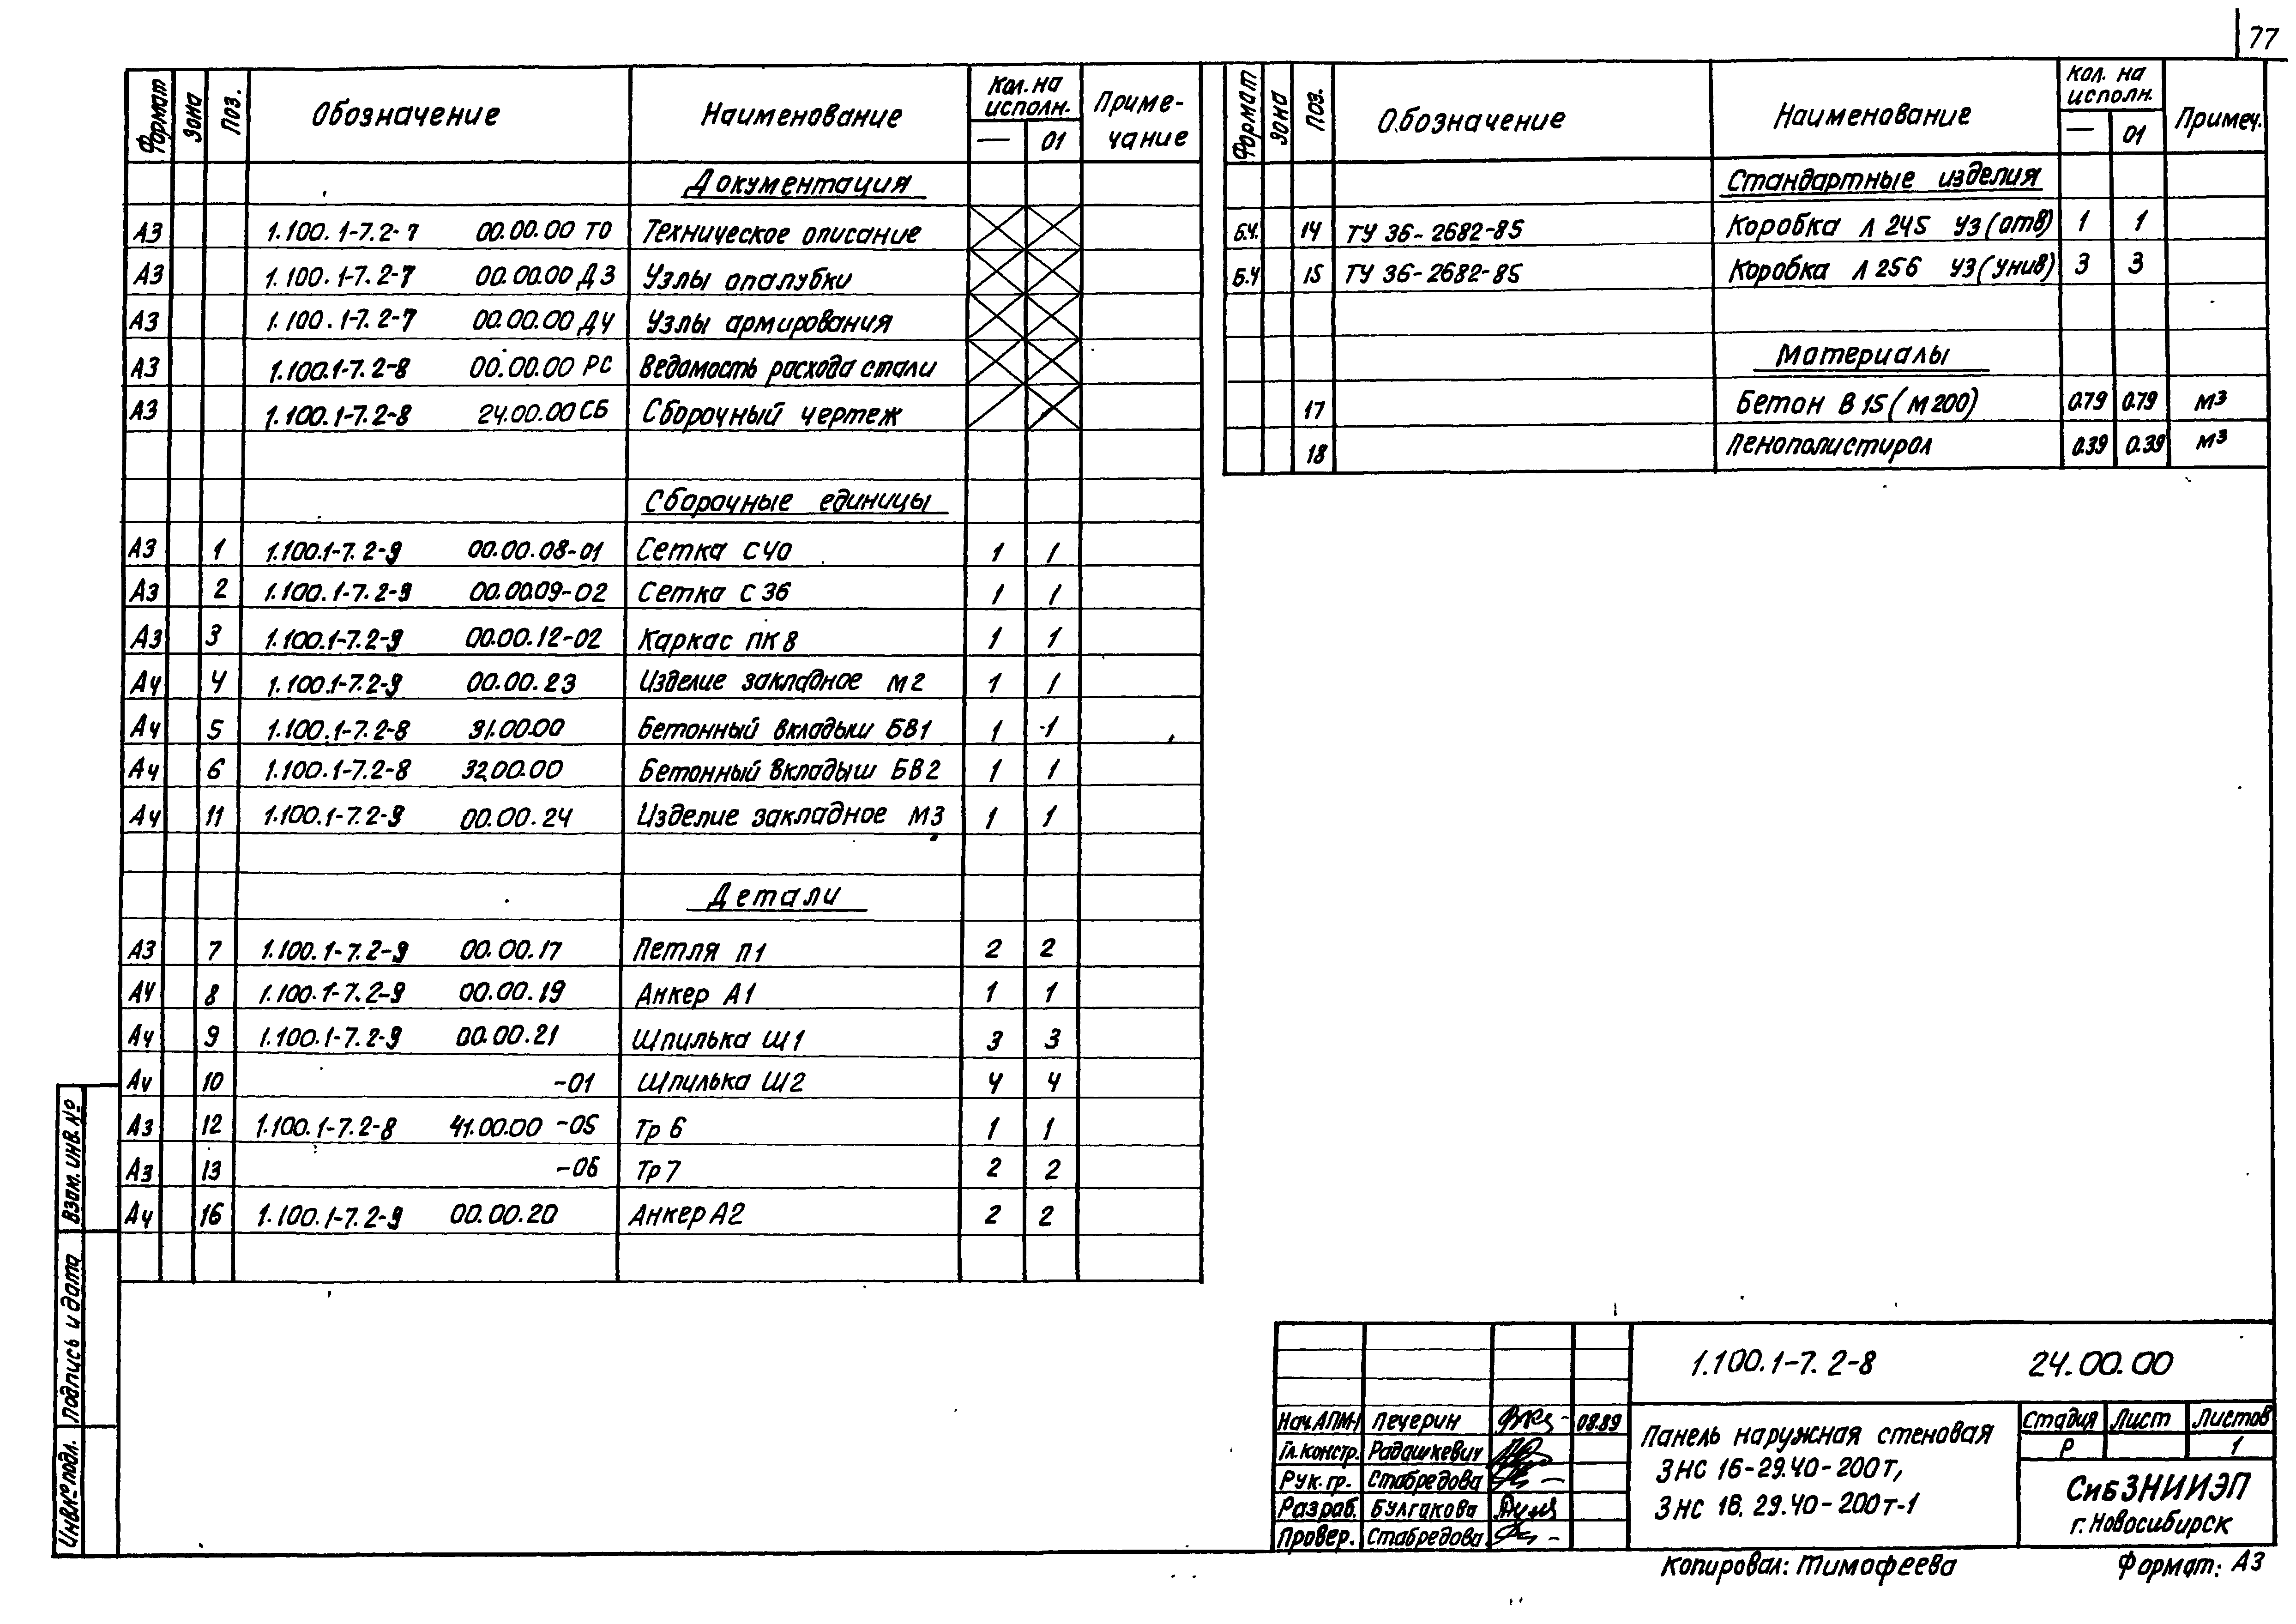 77
Формат Зона Поз. Обозначение Наименование Кол. на исполн. — 01 Приме-чание
Документация
А3 1.100.1-7.2-7 00.00.00 ТО Техническое описание
А3 1.100.1-7.2-7 00.00.00 Д3 Узлы опалубки
А3 1.100.1-7.2-7 00.00.00 Д4 Узлы армирования
А3 1.100.1-7.2-8 00.00.00 РС Ведомость расхода стали
А3 1.100.1-7.2-8 24.00.00 СБ Сборочный чертеж
Сборочные единицы
А3 1 1.100.1-7.2-9 00.00.08-01 Сетка С40 1 1
А3 2 1.100.1-7.2-9 00.00.09-02 Сетка С36 1 1
А3 3 1.100.1-7.2-9 00.00.12-02 Каркас ПК8 1 1
А4 4 1.100.1-7.2-9 00.00.23 Изделие закладное М2 1 1
А4 5 1.100.1-7.2-8 31.00.00 Бетонный вкладыш БВ1 1 1
А4 6 1.100.1-7.2-8 32.00.00 Бетонный вкладыш БВ2 1 1
А4 11 1.100.1-7.2-9 00.00.24 Изделие закладное М3 1 1
Детали
А3 7 1.100.1-7.2-9 00.00.17 Петля П1 2 2
А4 8 1.100.1-7.2-9 00.00.19 Анкер А1 1 1
А4 9 1.100.1-7.2-9 00.00.21 Шпилька Ш1 3 3
А4 10 -01 Шпилька Ш2 4 4
А3 12 1.100.1-7.2-8 41.00.00 -05 Тр 6 1 1
А3 13 -06 Тр 7 2 2
А4 16 1.100.1-7.2-9 00.00.20 Анкер А2 2 2
Формат Зона Поз. Обозначение Наименование Кол. на исполн. — 01 Примеч.
Стандартные изделия
Б.Ч. 14 ТУ 36-2682-85 Коробка Л 245 У3 (отв) 1 1
Б.Ч 15 ТУ 36-2682-85 Коробка Л 256 У3 (Унив) 3 3
Материалы
17 Бетон В 15 (М 200) 0.79 0.79 м3
18 Пенополистирол 0.39 0.39 м3
Взам. инв. №
Подпись и дата
Инв № подл.
1.100.1-7.2-8 24.00.00
Нач.АПМ-1 Печерин 08.89
Гл. констр. Радашкевич
Рук. гр. Стабредова
Разраб. Булгакова
Провер. Стабредова
Панель наружная стеновая
3НС 16-29.40-200т,
3НС 16.29.40-200т-1
Стадия Лист Листов
Р 1
СибЗНИИЭП
г. Новосибирск
Копировал: Тимофеева
Формат: А3